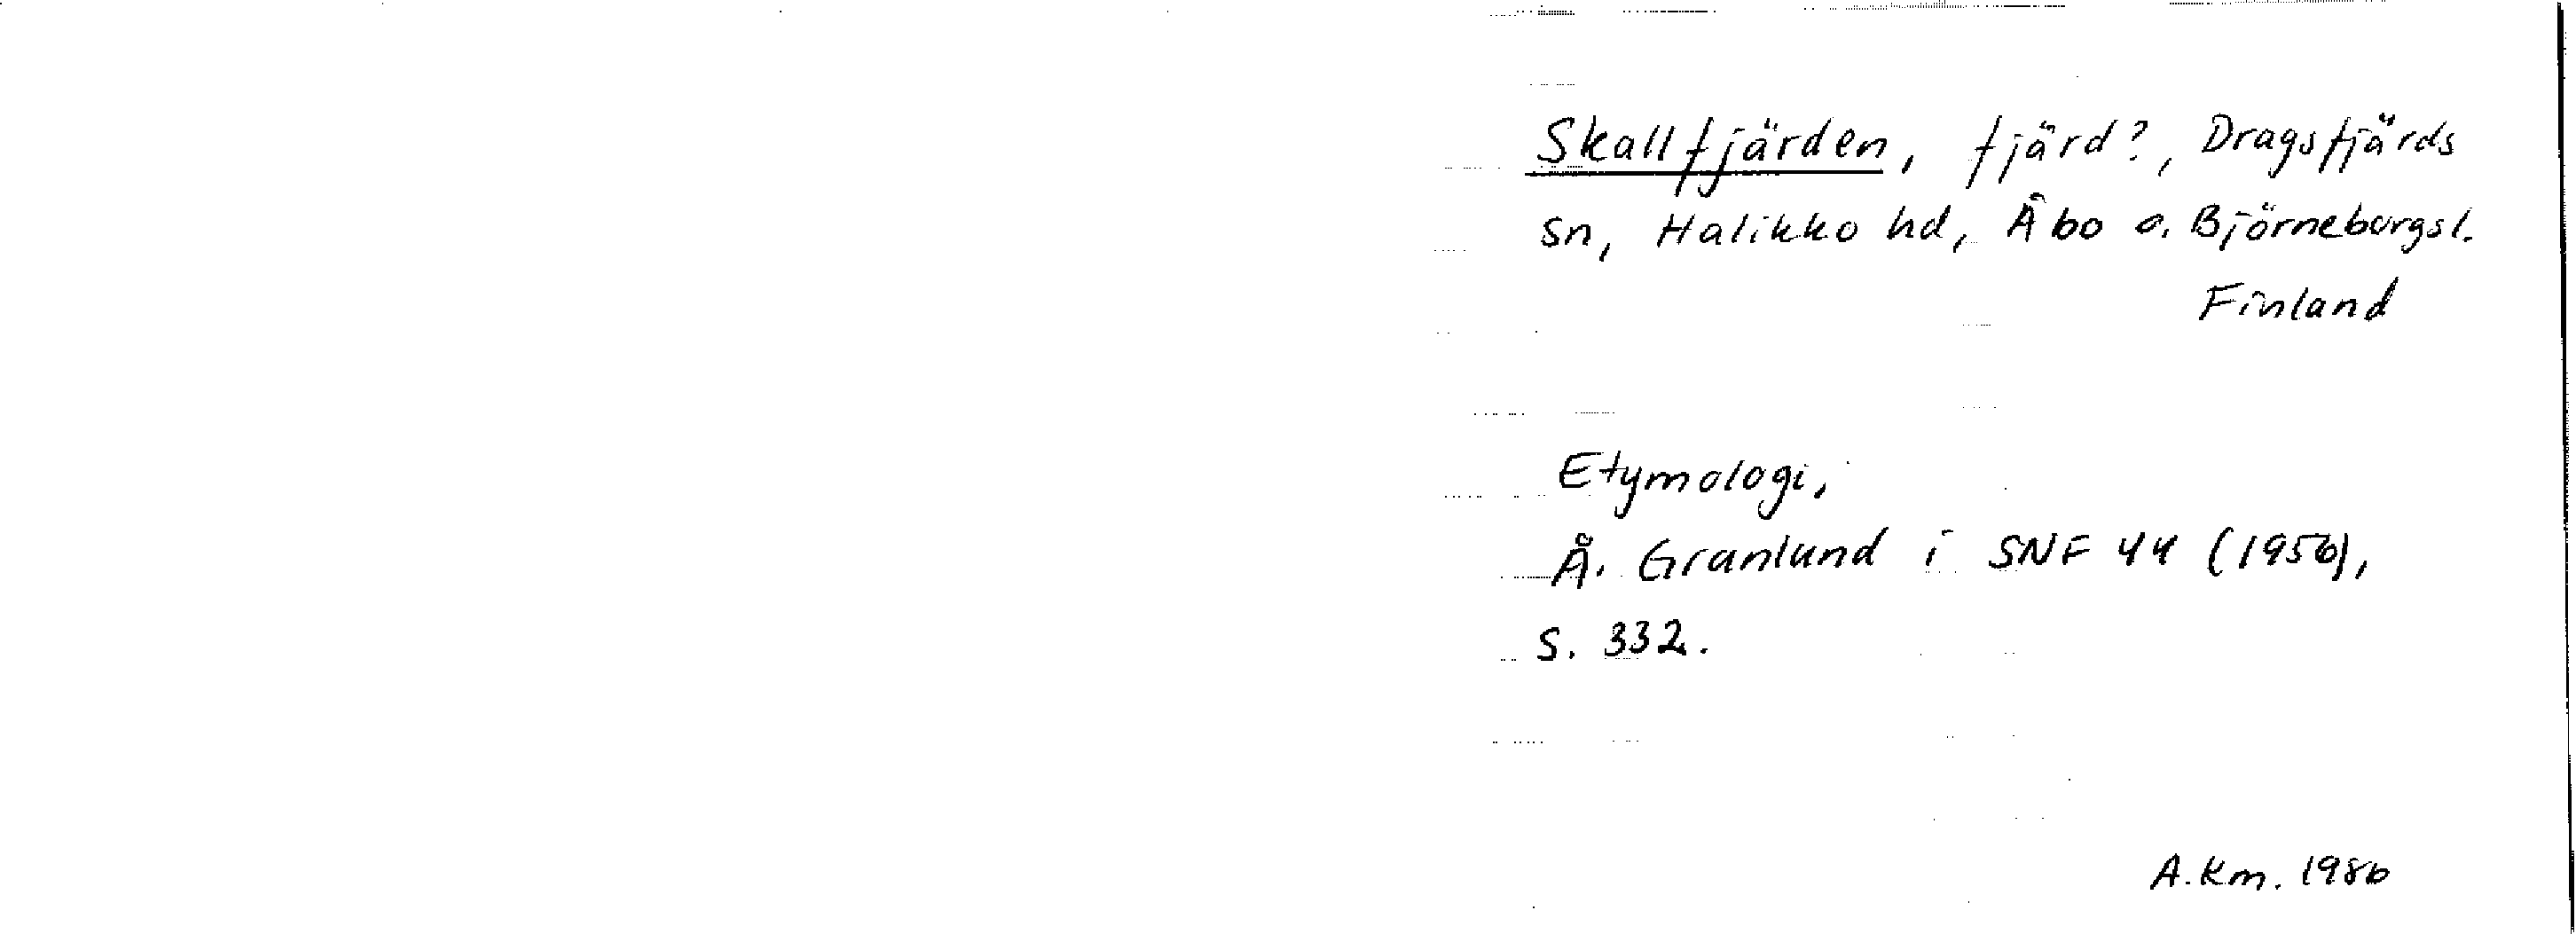 Skallfjärden, fjärd?, Dragsfjärds
sn, Halikko hd, Åbo o. Björneborgsl.
Finland
Etymologi,
Å. Granlund i SNF 44 (1956),
S. 332.
A. Km. 1986